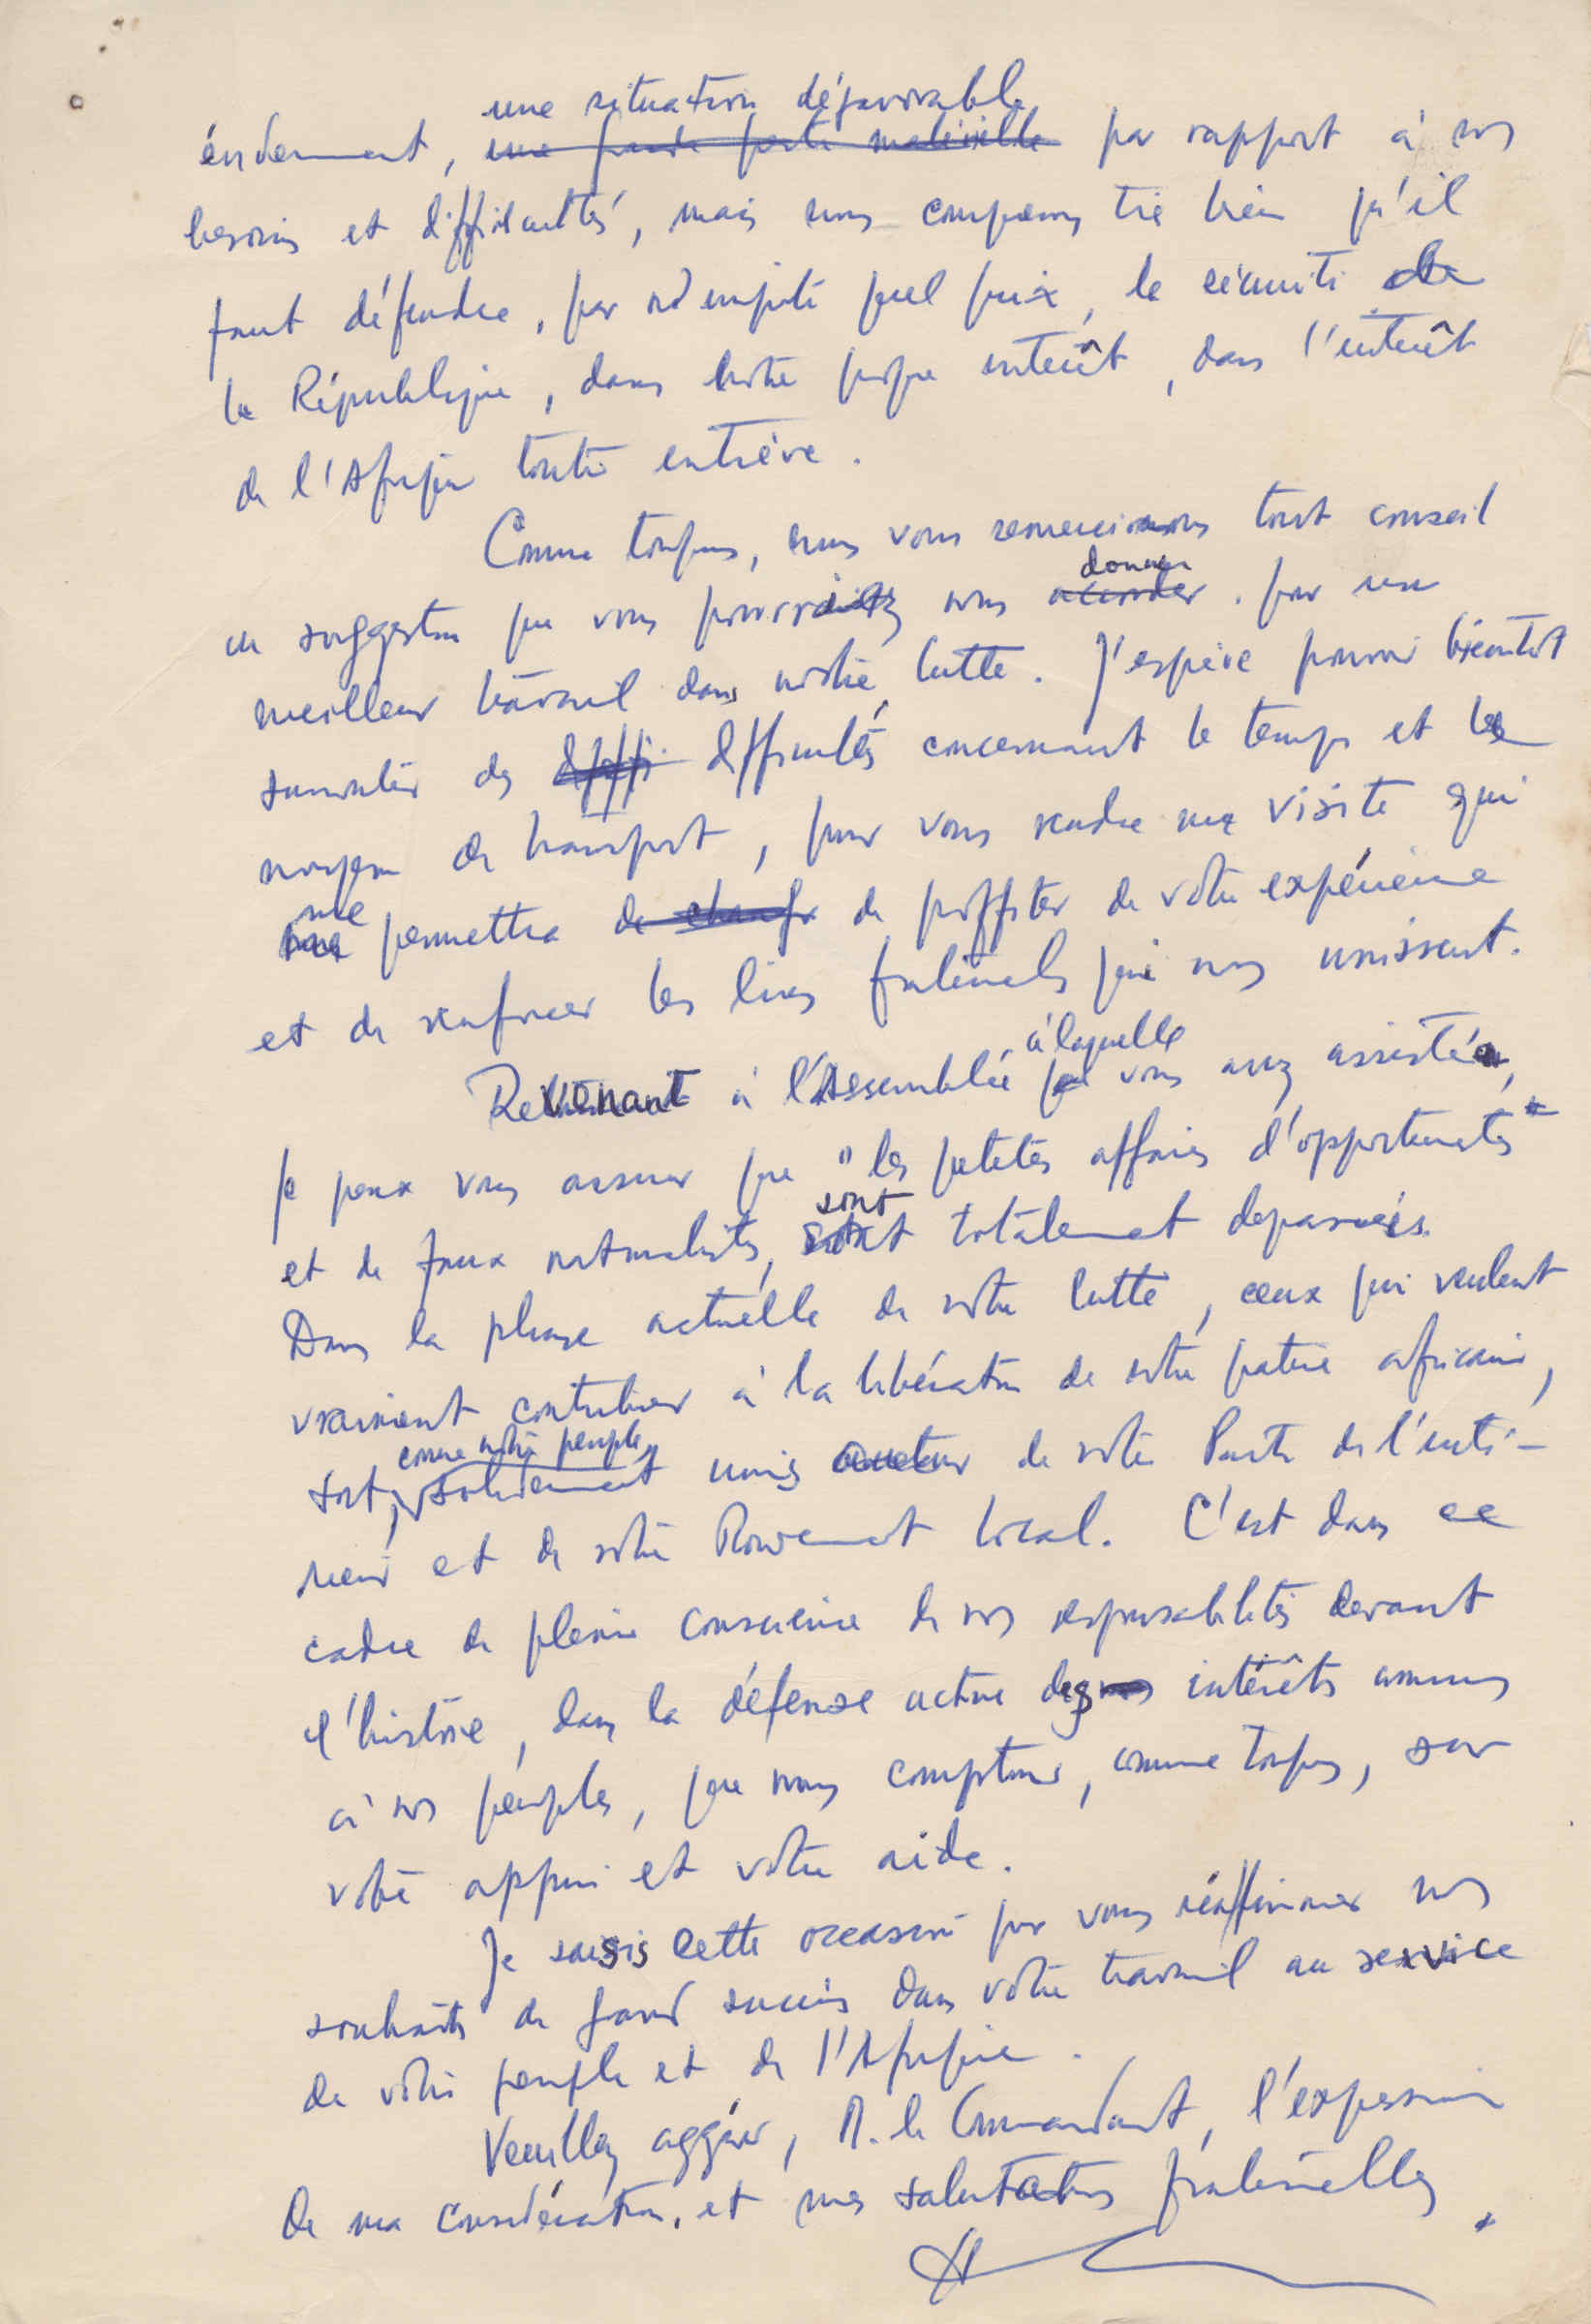 une situation défavorable
évidemment, une grande perte matérielle par rapport à nos
besoins et difficultés, mais nous comprenons très bien qu'il
faut défendre, par n'importe quel prix, la sécurité de
la République, dans notre propre interêt, dans l'intérêt
de l'Afrique toute entière.
Comme toujours, nous vous remercions tout conseil
donner
ou suggestion que vous pourriez nous accorder. pour un
meilleur travail dans notre lutte. J'espère pouvoir bientôt
surmonter des difficultés concernant le temps et le
moyen de transport, pour vous rendre une visite qui
me
permettra de de proffiter de votre expérience
et de renforcer les liens fraternels qui nous unissent.
à laquelle
Revenant à l'Assemblée que vous avez assisté,
je peux vous assurer que "les petites affaires d'opportunistes"
sont
et de faux nationalistes, sont totalement depassées.
Dans la phase actuelle de notre lutte, ceux qui veulent
vraiment contribuer à la libération de notre patrie africaine,
comme notre peuple,
sont, solidement unis autour de notre Parti de l'inté-
rieur et de notre Mouvement local. C'est dans ce
cadre de pleine conscience de nos responsabilités devant
l'histoire, dans la défense active des intérêts communs
à nos peuples, que nous comptons, comme toujours, sur
votre appui et votre aide.
Je saisis cette occasion pour vous réaffirmer nos
souhaits de grand succès dans votre travail au service
de votre peuple et de l'Afrique.
Veuillez aggréer, M. le Commandant, l'expression
de ma considération, et mes salutations fraternelles.